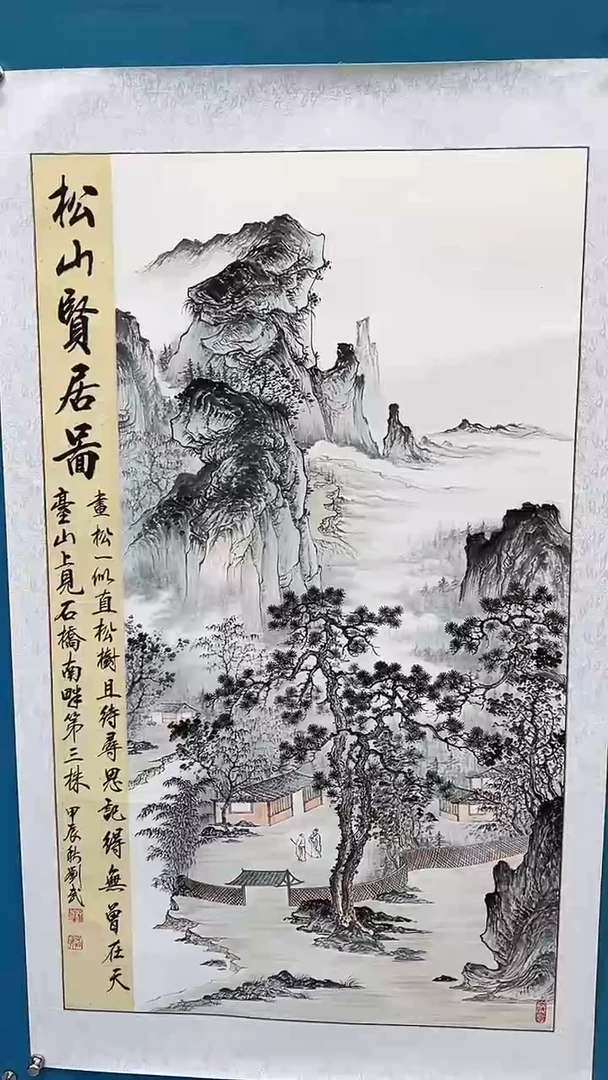 松山賢居啚
畫松一似直松樹且待尋思記得無曾在天
臺山上見石橋南畔第三株
甲辰秋劉武